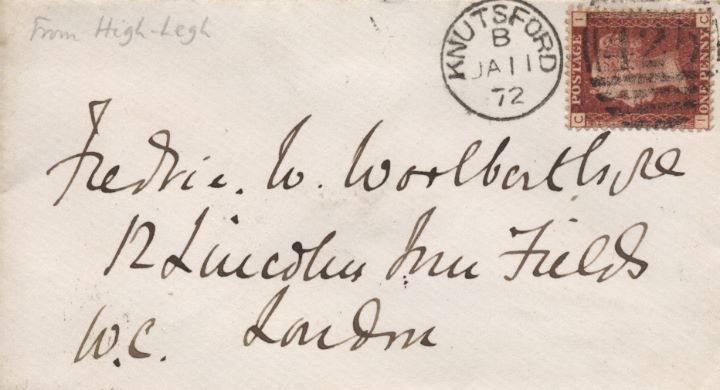 From High-Legh
KNUTSFORD
B
JA 11
72
I POSTAGE C
C ONE PENNY I
425
Fredric. W.
12 Lincoln Inn Fields
W.C. London